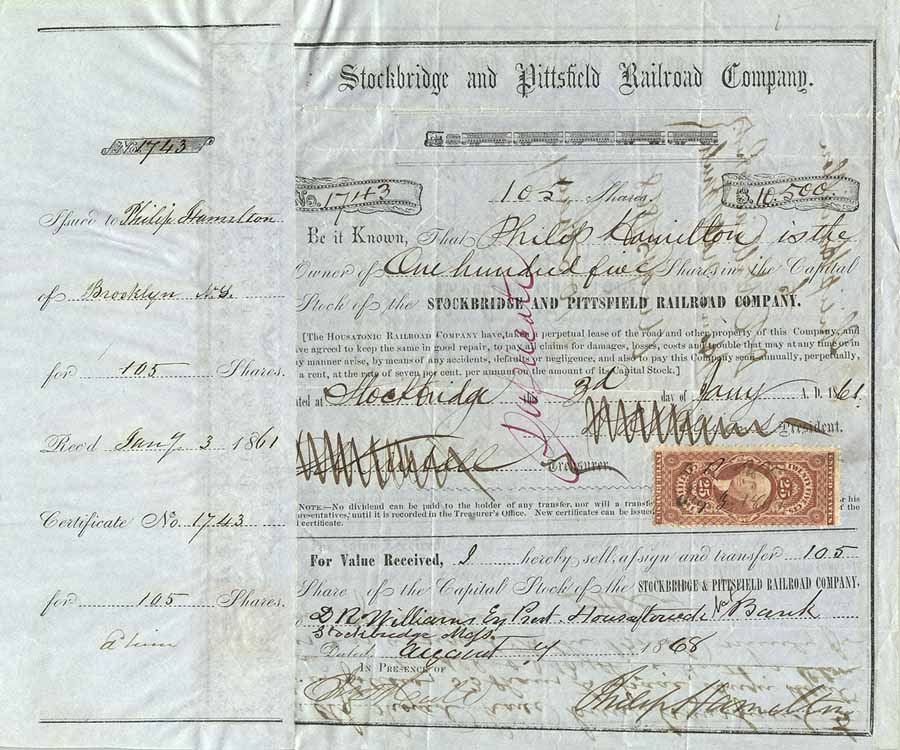 No. 1743
Issued to Philip Hamilton
of Brooklyn N.Y.
for 105 Shares.
Rec'd Jany. 3 1861
Certificate No. 1743
for 105 Shares.
Stockbridge and Pittsfield Railroad Company.
No. 1743
105 Shares.
$.10.500
Be it Known, That Philip Hamilton is the
Owner of One hundred five Shares in the Capital
Stock of the STOCKBRIDGE AND PITTSFIELD RAILROAD COMPANY.
[The Housatonic Railroad Company have, taken a perpetual lease of the road and other property of this Company, and
ve agreed to keep the same in good repair, to pay all claims for damages, losses, costs and trouble that may at any time or in
y manner arise, by means of any accidents, defaults or negligence, and also to pay this Company semi-annually, perpetually,
a rent, at the rate of seven per cent. per annum on the amount of its Capital Stock.]
ated at Stockbridge the 3d day of Jany A. D. 1861
President.
Treasurer.
Duplicate
25 25
Note.—No dividend can be paid to the holder of any transfer, nor will a transfe his
presentatives, until it is recorded in the Treasurer's Office. New certificates can be issued of the
d certificate.
For Value Received, I hereby sell, assign and transfer 105
Share of the Capital Stock of the STOCKBRIDGE & PITTSFIELD RAILROAD COMPANY,
D R Williams Prest Housatonic Bank
Stockbridge
Dated August 7 1868
In Presence of
Philip Hamilton